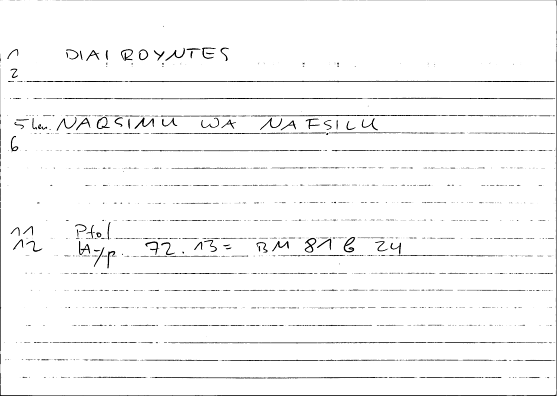 1 DIAIROYNTES
2
5 NAQSIMU WA NAFSILU
6
11 Ptol
12 Hyp. 72.13 = BM 81 b 24